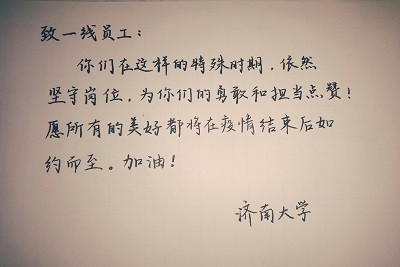 致一线员工：
你们在这样的特殊时期，依然
坚守岗位，为你们的勇敢和担当点赞！
愿所有的美好都将在疫情结束后如
约而至。加油！
济南大学